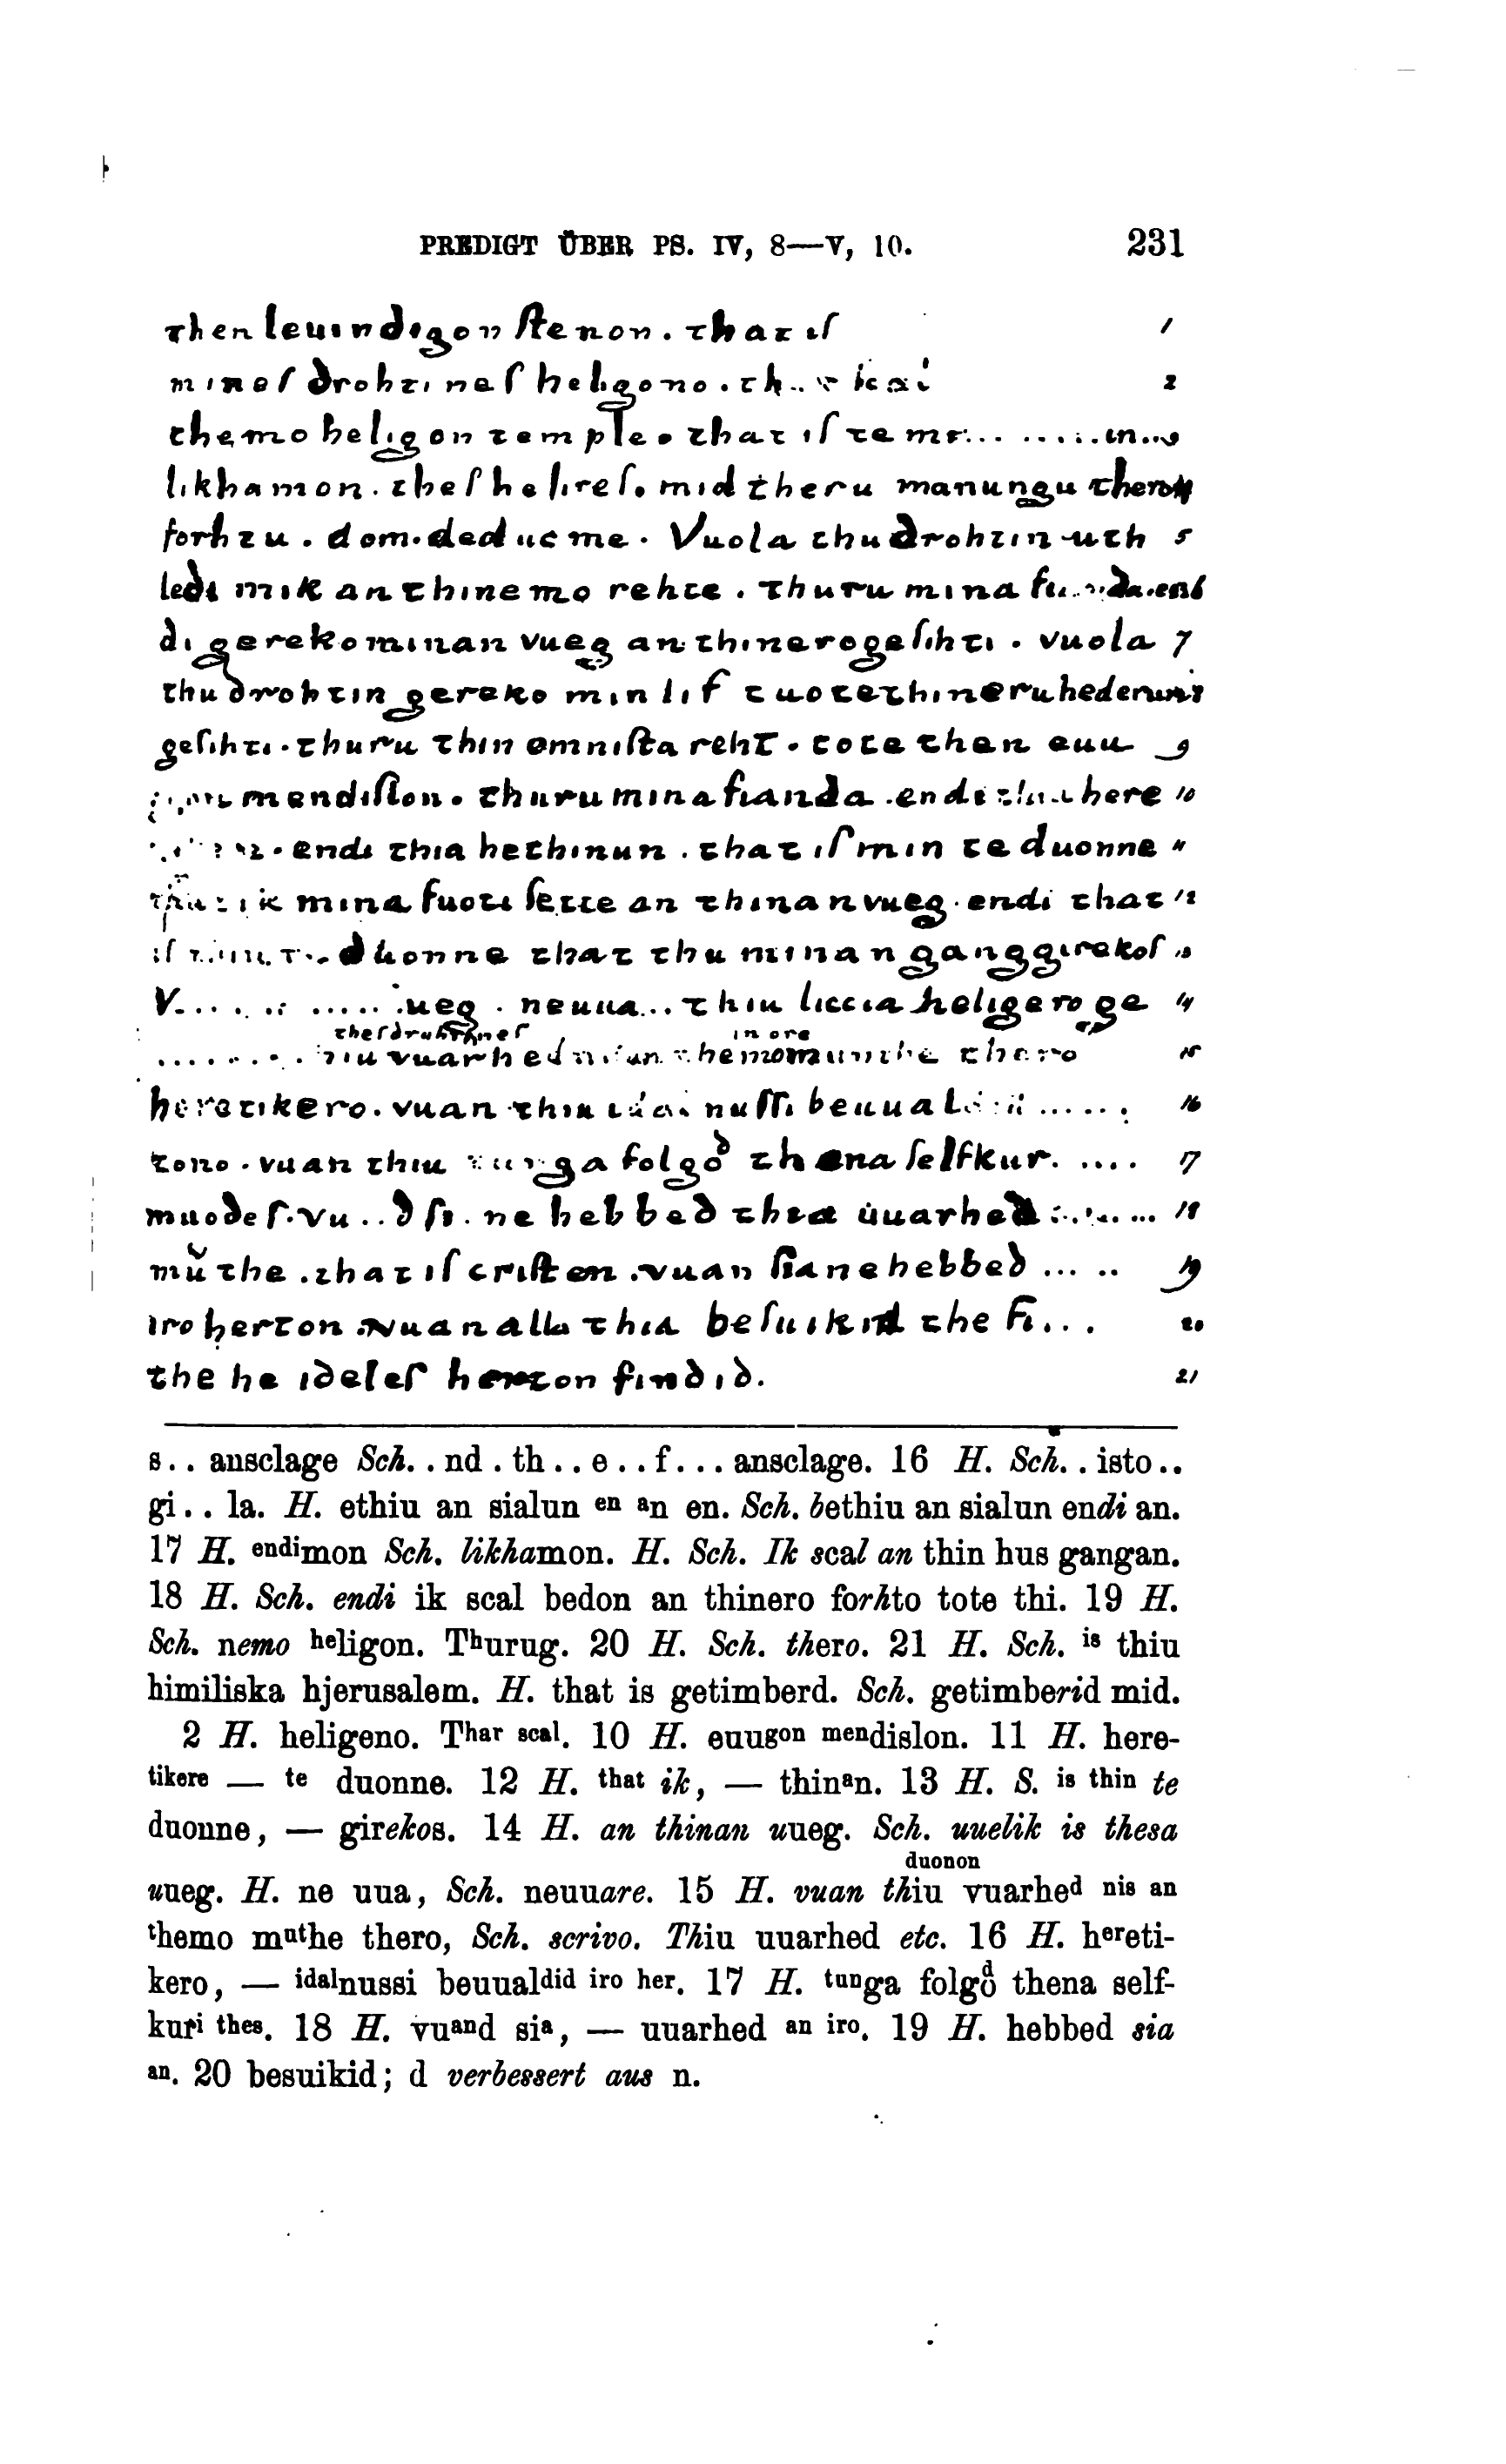 PREDIGT ÜBER PS. IV, 8—V, 10. 231
then leuindigon ſtenon . that iſ 1
mineſ drohtineſ heligono . th.. 2
themo heligon temple . that iſ te
likhamon . theſ heſireſ . mid theru manungu theru
forhtu . dom . deduc me . Vuola thu drohtin uth 5
ledi mik an thinemo rehte . thuru mina
di gereko minan vueg an thinero geſihti . vuola 7
thu drohtin gereko min lif tuote thineru hederun
geſihti . thuru thin emniſta reht . tote then euu 9
mendiſlon . thuru mina fianda . endi here 10
endi thia hethinun . that iſ min te duonne 11
ik mina fuoti ſette an thinan vueg . endi that 12
iſ duonne that thu minan gang girekoſ 13
V... ueg . neuua... thiu liccia heligero ge 14
theſ drohtineſ in ore
vuarhed themo thero 15
heretikero . vuan thiu nuſſi beuual 16
tono . vuan thiu folgod thena ſelfkur. .... 17
muodeſ . vu..d ſi . ne hebbed thea uuarhed 18
muthe . that iſ criſten . vuan ſia ne hebbed ... .. 19
iro herton . Nuan alla thia beſuikid the fi... 20
the he ideleſ herton findid . 21
s.. ansclage Sch. . nd . th . . e . . f . . . ansclage. 16 H. Sch. . isto . .
gi . . la. H. ethiu an sialun en an en. Sch. bethiu an sialun endi an.
17 H. endimon Sch. likhamon. H. Sch. Ik scal an thin hus gangan.
18 H. Sch. endi ik scal bedon an thinero forhto tote thi. 19 H.
Sch. nemo heligon. Thurug. 20 H. Sch. thero. 21 H. Sch. is thiu
himiliska hjerusalem. H. that is getimberd. Sch. getimberid mid.
2 H. heligeno. Thar scal. 10 H. euugon mendislon. 11 H. here-
tikere — te duonne. 12 H. that ik, — thinan. 13 H. S. is thin te
duonne, — girekos. 14 H. an thinan uueg. Sch. uuelik is thesa
duonon
uueg. H. ne uua, Sch. neuuare. 15 H. vuan thiu vuarhed nis an
themo muthe thero, Sch. scrivo. Thiu uuarhed etc. 16 H. hereti-
kero, — idalnussi beuualdid iro her. 17 H. tunga folgod thena self-
kuri thes. 18 H. vuand sia, — uuarhed an iro. 19 H. hebbed sia
an. 20 besuikid; d verbessert aus n.